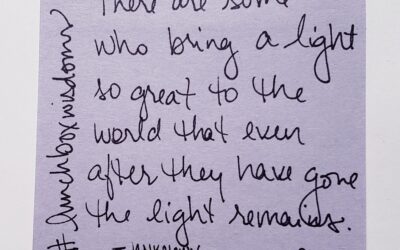 There are some
who bring a light
so great to the
world that even
after they have gone
the light remains.
- unknown
#lunchboxwisdoms